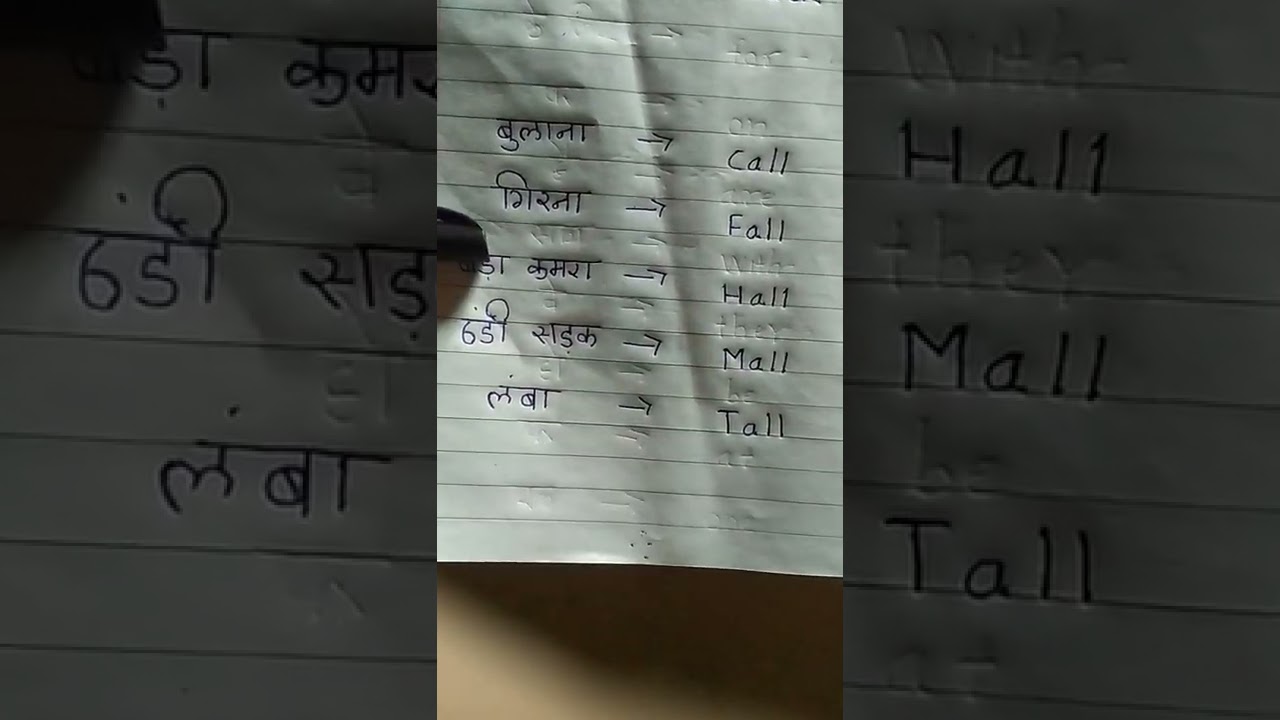 बुलाना → Call
गिरना → Fall
कमरा → Hall
ठंडी सड़क → Mall
लंबा → Tall